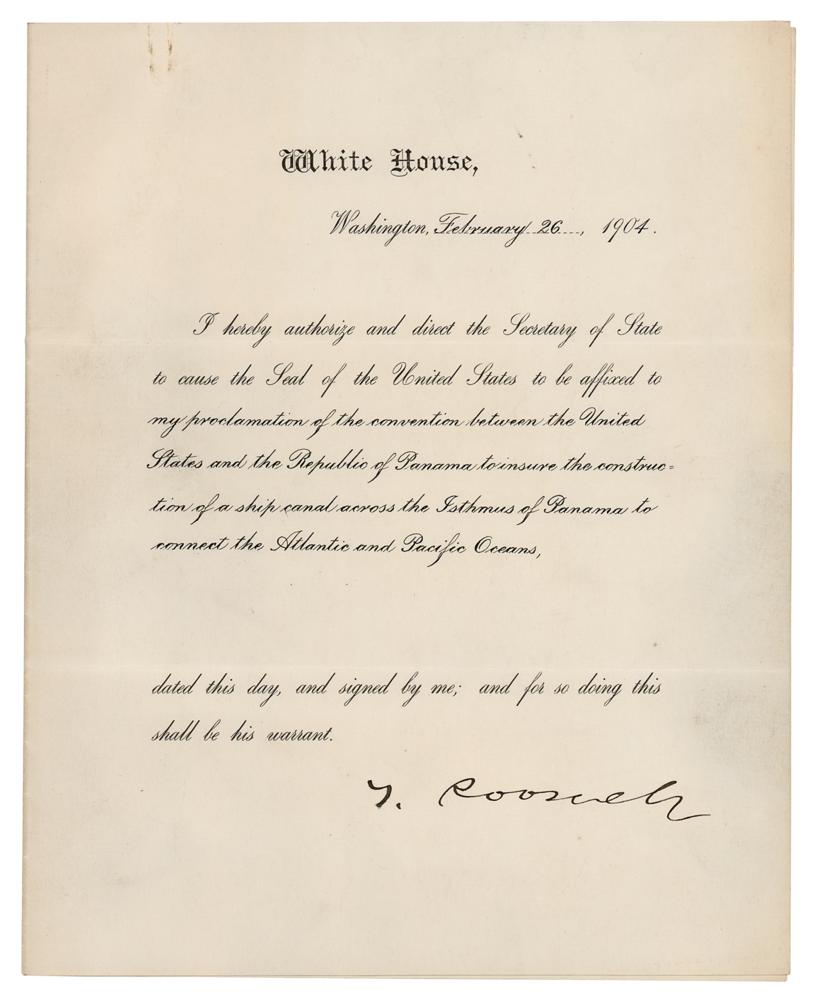 White House,
Washington, February 26, 1904.
I hereby authorize and direct the Secretary of State
to cause the Seal of the United States to be affixed to
my proclamation of the convention between the United
States and the Republic of Panama to insure the construc=
tion of a ship canal across the Isthmus of Panama to
connect the Atlantic and Pacific Oceans,
dated this day, and signed by me; and for so doing this
shall be his warrant.
T. Roosevelt